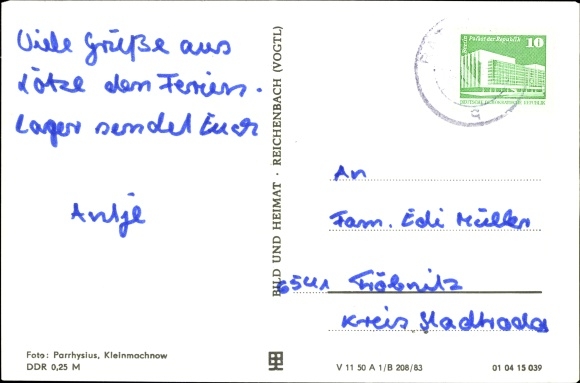 Viele Grüße aus
dem Ferien-
lager sendet Euch
Antje
Berlin Palast der Republik 10
DEUTSCHE DEMOKRATISCHE REPUBLIK
BILD UND HEIMAT · REICHENBACH (VOGTL)
An
Fam. Edi Müller
6541 Tröbnitz
Kreis Stadtroda
Foto: Parrhysius, Kleinmachnow
DDR 0,25 M
V 11 50 A 1/B 208/83
01 04 15 039